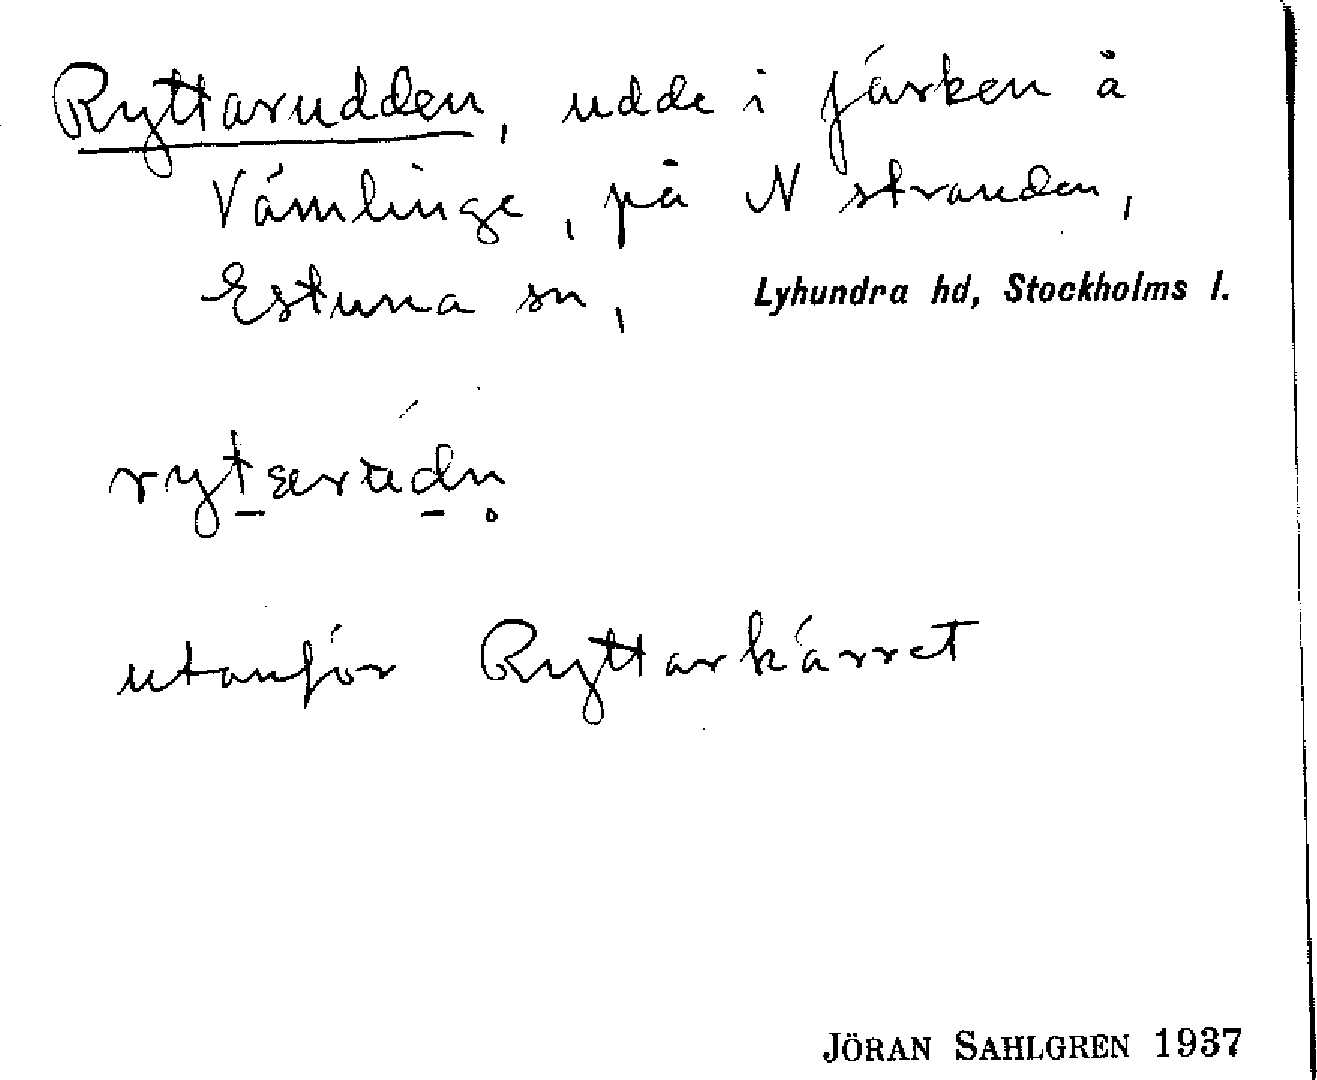 Ryttarudden, udde i färken å
Vämlinge, på N stranden,
Estuna sn, Lyhundra hd, Stockholms l.
utanför Ryttarkärret
JÖRAN SAHLGREN 1937